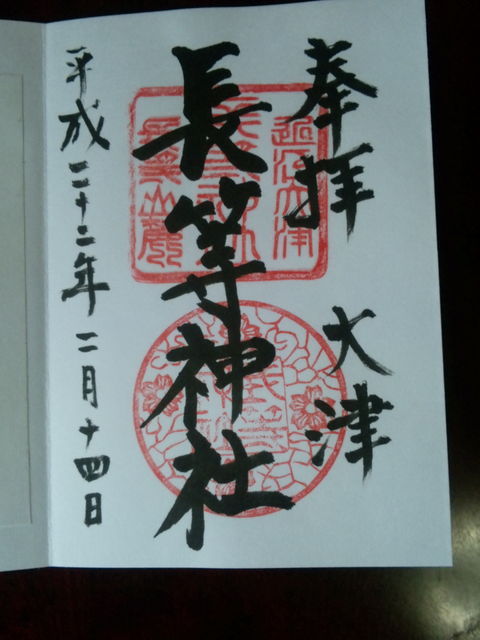 奉拝 大津
長等神社
平成二十二年二月十四日